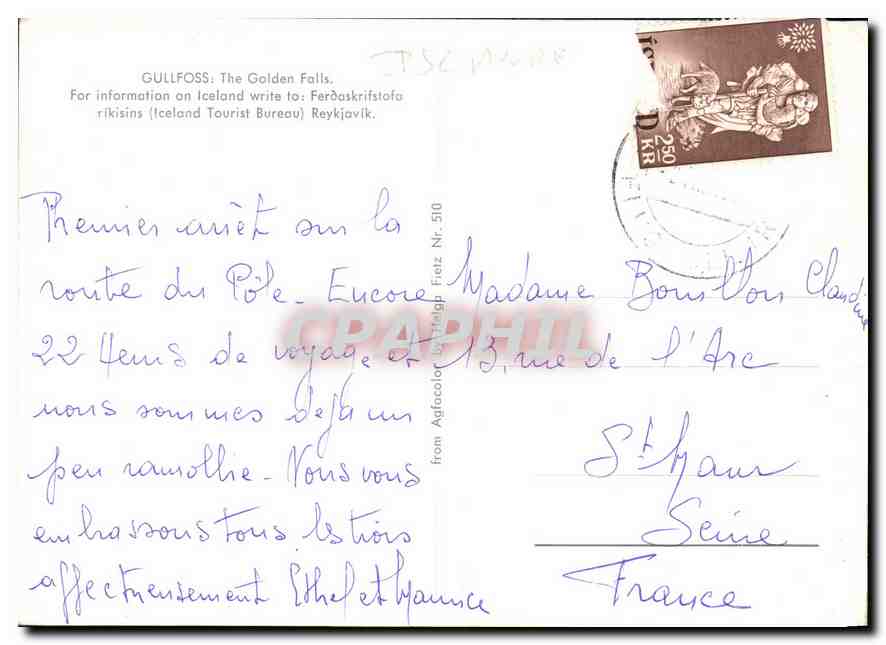 GULLFOSS: The Golden Falls.
For information on Iceland write to: Ferðaskrifstofa
ríkisins (Iceland Tourist Bureau) Reykjavík.
2.50
KR
Premier arrêt sur la
route du Pôle. Encore
22 Heures de voyage et
nous sommes déjà un
peu ramollie. Nous vous
embrassons tous les trois
affectueusement Ethel et Maurice
from Agfacolor by Helga Fietz Nr. 510
Madame Bouillon Claudine
13, rue de l'Arc
St Maur
Seine
France
CPAPHIL